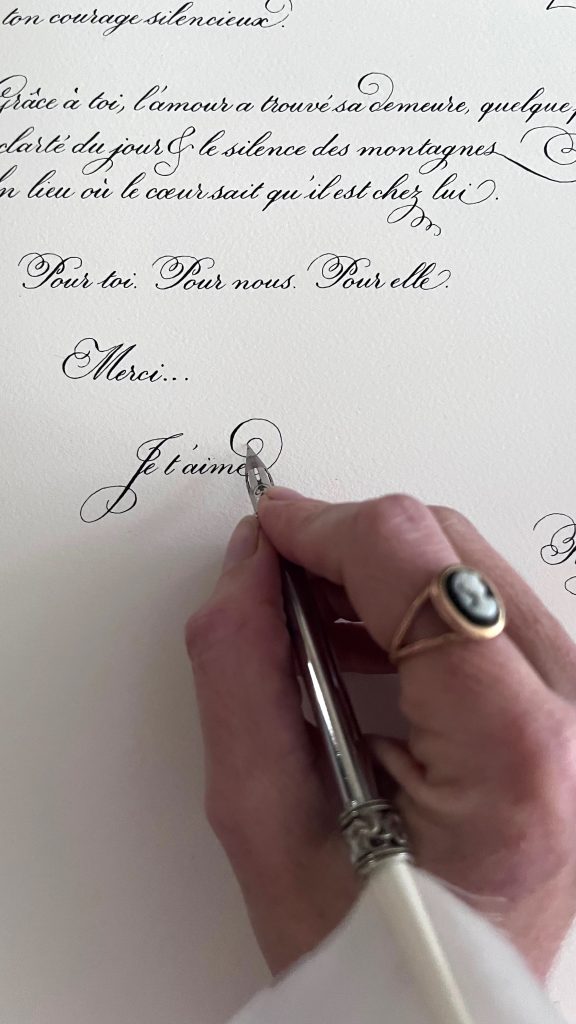 ton courage silencieux.
Grâce à toi, l'amour a trouvé sa demeure, quelque
clarté du jour & le silence des montagnes
un lieu où le cœur sait qu'il est chez lui.
Pour toi. Pour nous. Pour elle.
Merci...
Je t'aime